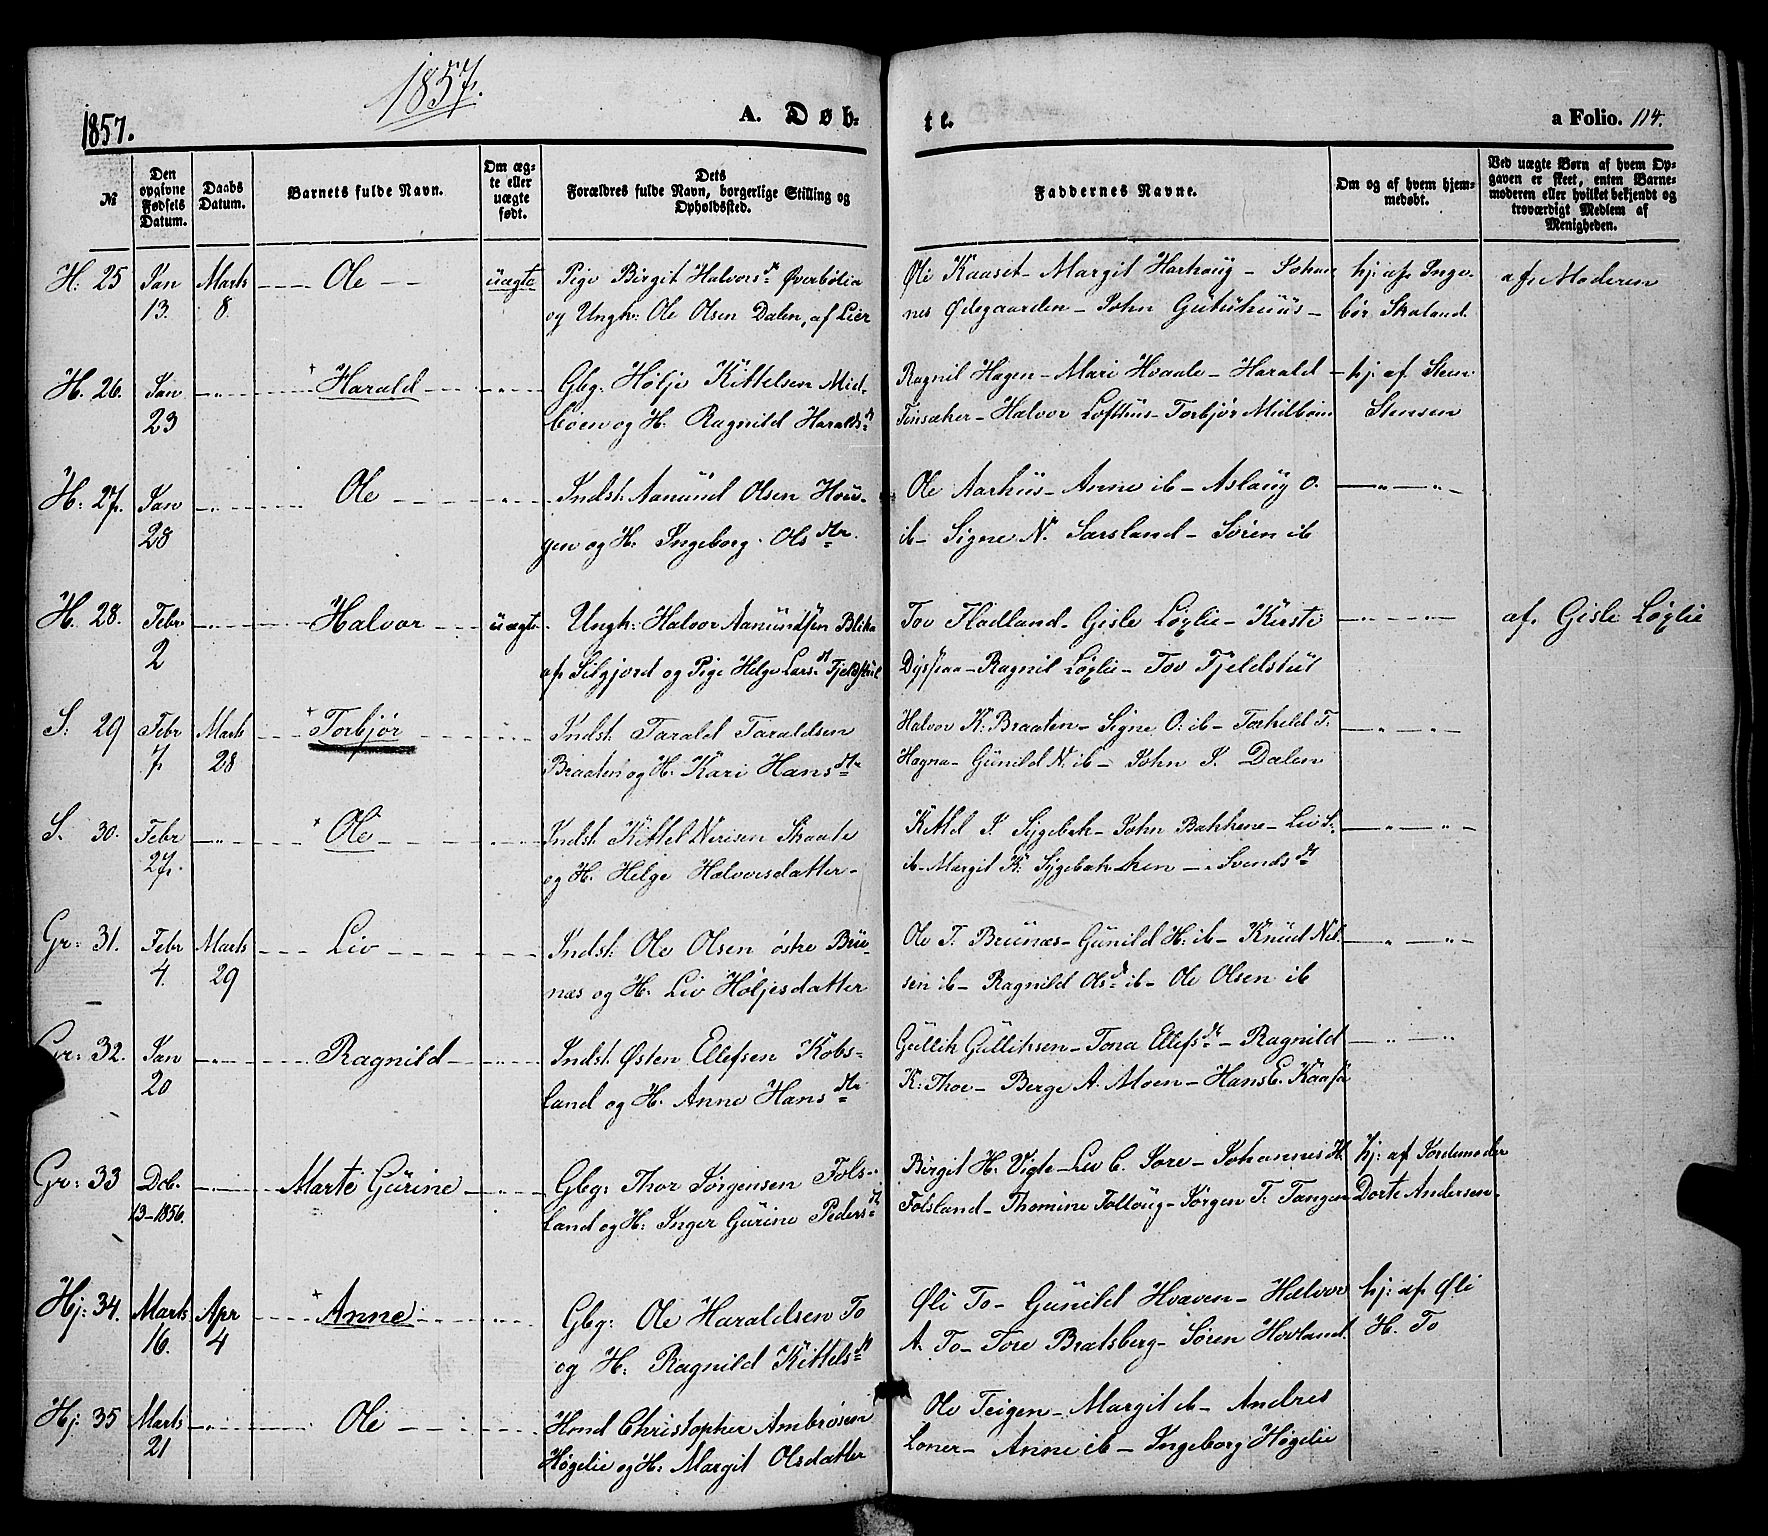 1857.
1857.
A. Døb-
te.
a Folio. 114.
№
Den opgivne Fødsels Datum.
Daabs Datum.
Barnets fulde Navn.
Om ægte eller uægte født.
Dets Forældres fulde Navn, borgerlige Stilling og Opholdssted.
Faddernes Navne.
Om og af hvem hjemmedøbt.
Ved uægte Børn af hvem Opgaven er skeet, enten Barnemoderen eller hvilket bekjendt og troværdigt Medlem af Menigheden.
H. 25 Jan Marts Ole uægte Pige Birgit Halvorsd. Øverbølia Øli Kaaset - Margit Harhoug - Johan hj. af Inge- af Moderen
13. 8. og Ungk: Ole Olsen Dalen, af Lier nes Ødegaarden - John Gutuhuus - bør Skaland
H. 26. Jan -"- + Harald -"- Gbg: Hølje Kittelsen Mid- Ragnil Hagen - Mari Hvaale - Harald - hj. af Sten
23 bøen og H. Ragnild Haraldsd. Tinsaker - Halvor Lofthus - Torbjør Midbøen Stensen
H. 27. Jan -"- Ole -"- Indst: Aanund Olsen Hou- Ole Aarhus - Anne ib - Aslaug O. -"-"-
28 gen og H. Ingeborg Olsdtr. ib - Signe N. Sarsland - Søren ib
H. 28. Febr. -"- Halvor uægte Ungk: Halvor Aanundsen Blika Tov Fladland - Gisle Løglie - Kirsti -"-"- af Gisle Løglie
2 af Silgjord og Pige Helge Larsd. Fjeldstul Dyssaa - Ragnil Løglie - Tov Fjeldstul
S: 29 Febr Marts + Torbjør -"- Indst: Tarald Taraldsen Halvor K. Braaten - Signe O: ib - Torkeld T. -"-"-
7 28 Braaten og H. Kari Hansdtr Hogna - Gunild N. ib - John S. Dalen
S. 30. Febr -"- + Ole -"- Indst: Kittel Nirisen Skaate Kittel S Sygebak - John Bakkene - Liv S: -"-"-
27. og H. Helge Halvorsdatter - ib - Margit K. Sygebakken - Svendsd.
Gr: 31. Febr Marts Liv -"- Indst: Ole Olsen østre Bru- Ole T. Brunæs - Gunild H: ib - Knud Nil- -"-"-
4. 29 næs og H. Liv Høljesdatter sen ib - Ragnild Olsd. ib - Ole Olsen ib
Gr: 32. Jan -"- Ragnild -"- Indst: Østen Ellefsen Kobs- Gullik Gulliksen - Tona Ellefsd. - Ragnild -"-"-
20 land og H. Anne Hansdtr K: Thoe - Berge A. Moen - Hans E. Kaasa
Gr: 33 Dcb. -"- Marte Gurine -"- Gbg: Thor Jørgensen Fols- Birgit H: Vigte - Liv C. Sore - Johannes H. hj: af Jordemoder
13-1856. land og H: Inger Gurine Pedersd. Folsland - Thomine Folloug - Jørgen T. Tangen Dorte Andersen.
Hj: 34. Marts Apr + Anne -"- Gbg: Ole Haraldsen To Øli To - Gunild Hvaven - Halvor hj: af Øli
16. 4 og H: Ragnild Kittelsd. A. To - Tore Bratsberg - Søren Hovland. H. To
Hj: 35 Marts -"- Ole -"- Hmd Christopher Ambrosen Ole Teigen - Margit ib - Andres
21 Høgelie og H: Margit Olsdatter Loner - Anne ib - Ingeborg Høgelie